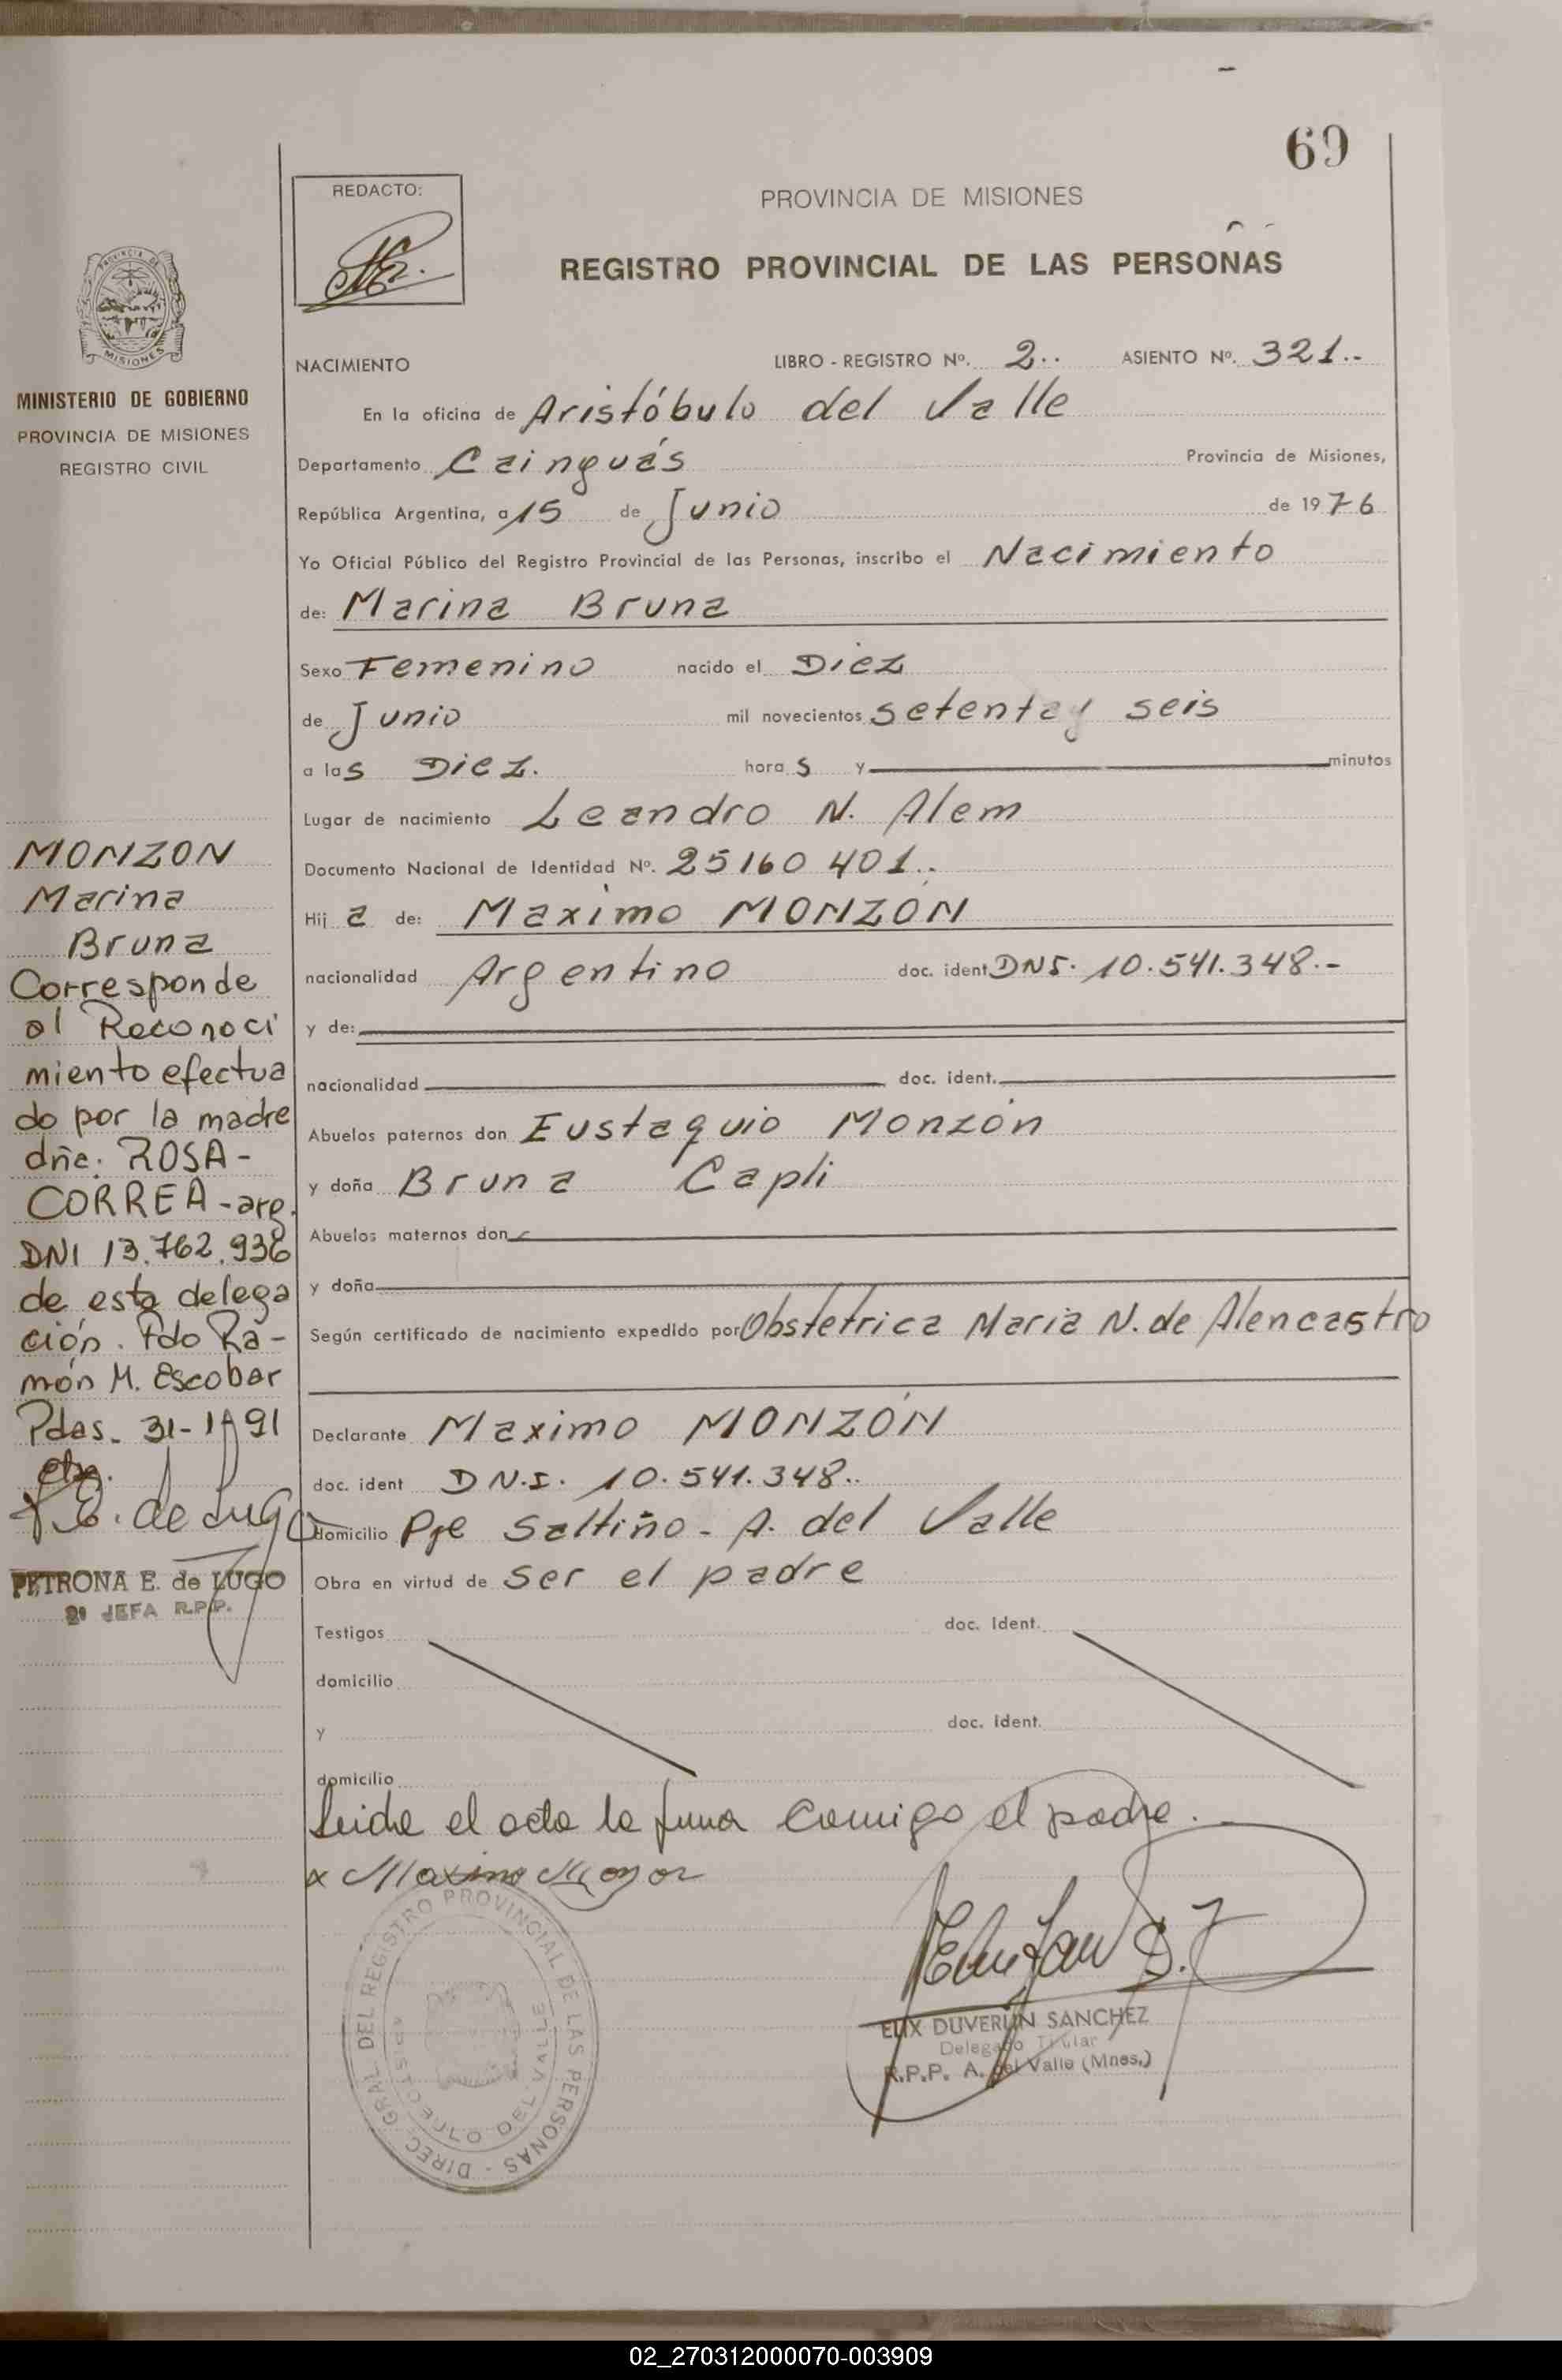 69
REDACTO:
PROVINCIA DE MISIONES
REGISTRO PROVINCIAL DE LAS PERSONAS
PROVINCIA DE
MISIONES
MINISTERIO DE GOBIERNO
PROVINCIA DE MISIONES
REGISTRO CIVIL
NACIMIENTO LIBRO - REGISTRO Nº. 2.. ASIENTO Nº. 321.-
En la oficina de Aristóbulo del Valle
Departamento Cainguás Provincia de Misiones,
República Argentina, a 15 de Junio de 1976
Yo Oficial Público del Registro Provincial de las Personas, inscribo el Nacimiento
de: Marina Bruna
Sexo Femenino nacido el Diez
de Junio mil novecientos setenta y seis
a las Diez. horas y minutos
Lugar de nacimiento Leandro N. Alem
Documento Nacional de Identidad Nº. 25160401..
Hija de: Maximo MONZÓN
nacionalidad Argentino doc. ident DNI. 10.541.348.-
y de:
nacionalidad doc. ident.
Abuelos paternos don Eustaquio Monzón
y doña Bruna Capli
Abuelos maternos don
y doña
Según certificado de nacimiento expedido por Obstetrica Maria N. de Alencastro
Declarante Maximo MONZÓN
doc. ident D N.I. 10.541.348..
domicilio Pje Saltiño - A. del Valle
Obra en virtud de ser el padre
Testigos doc. Ident.
domicilio
y doc. Ident.
domicilio
Leida el acta la firma comigo el padre.
x Maximo Monzon
MONZON
Marina
Bruna
Corresponde
al Reconoci
miento efectua
do por la madre
dña. ROSA-
CORREA - arg.
DNI 13.762.936
de esta delega
ción. Fdo Ra-
món M. Escobar
Pdas. 31-1-91
E. de Lugo
PETRONA E. de LUGO
2º JEFA R.P.P.
DIREC. GRAL. DEL REGISTRO PROVINCIAL DE LAS PERSONAS -
ARISTOBULO DEL VALLE
ELIX DUVERLIN SANCHEZ
Delegado Titular
R.P.P. A. del Valle (Mnes.)
02_270312000070-003909